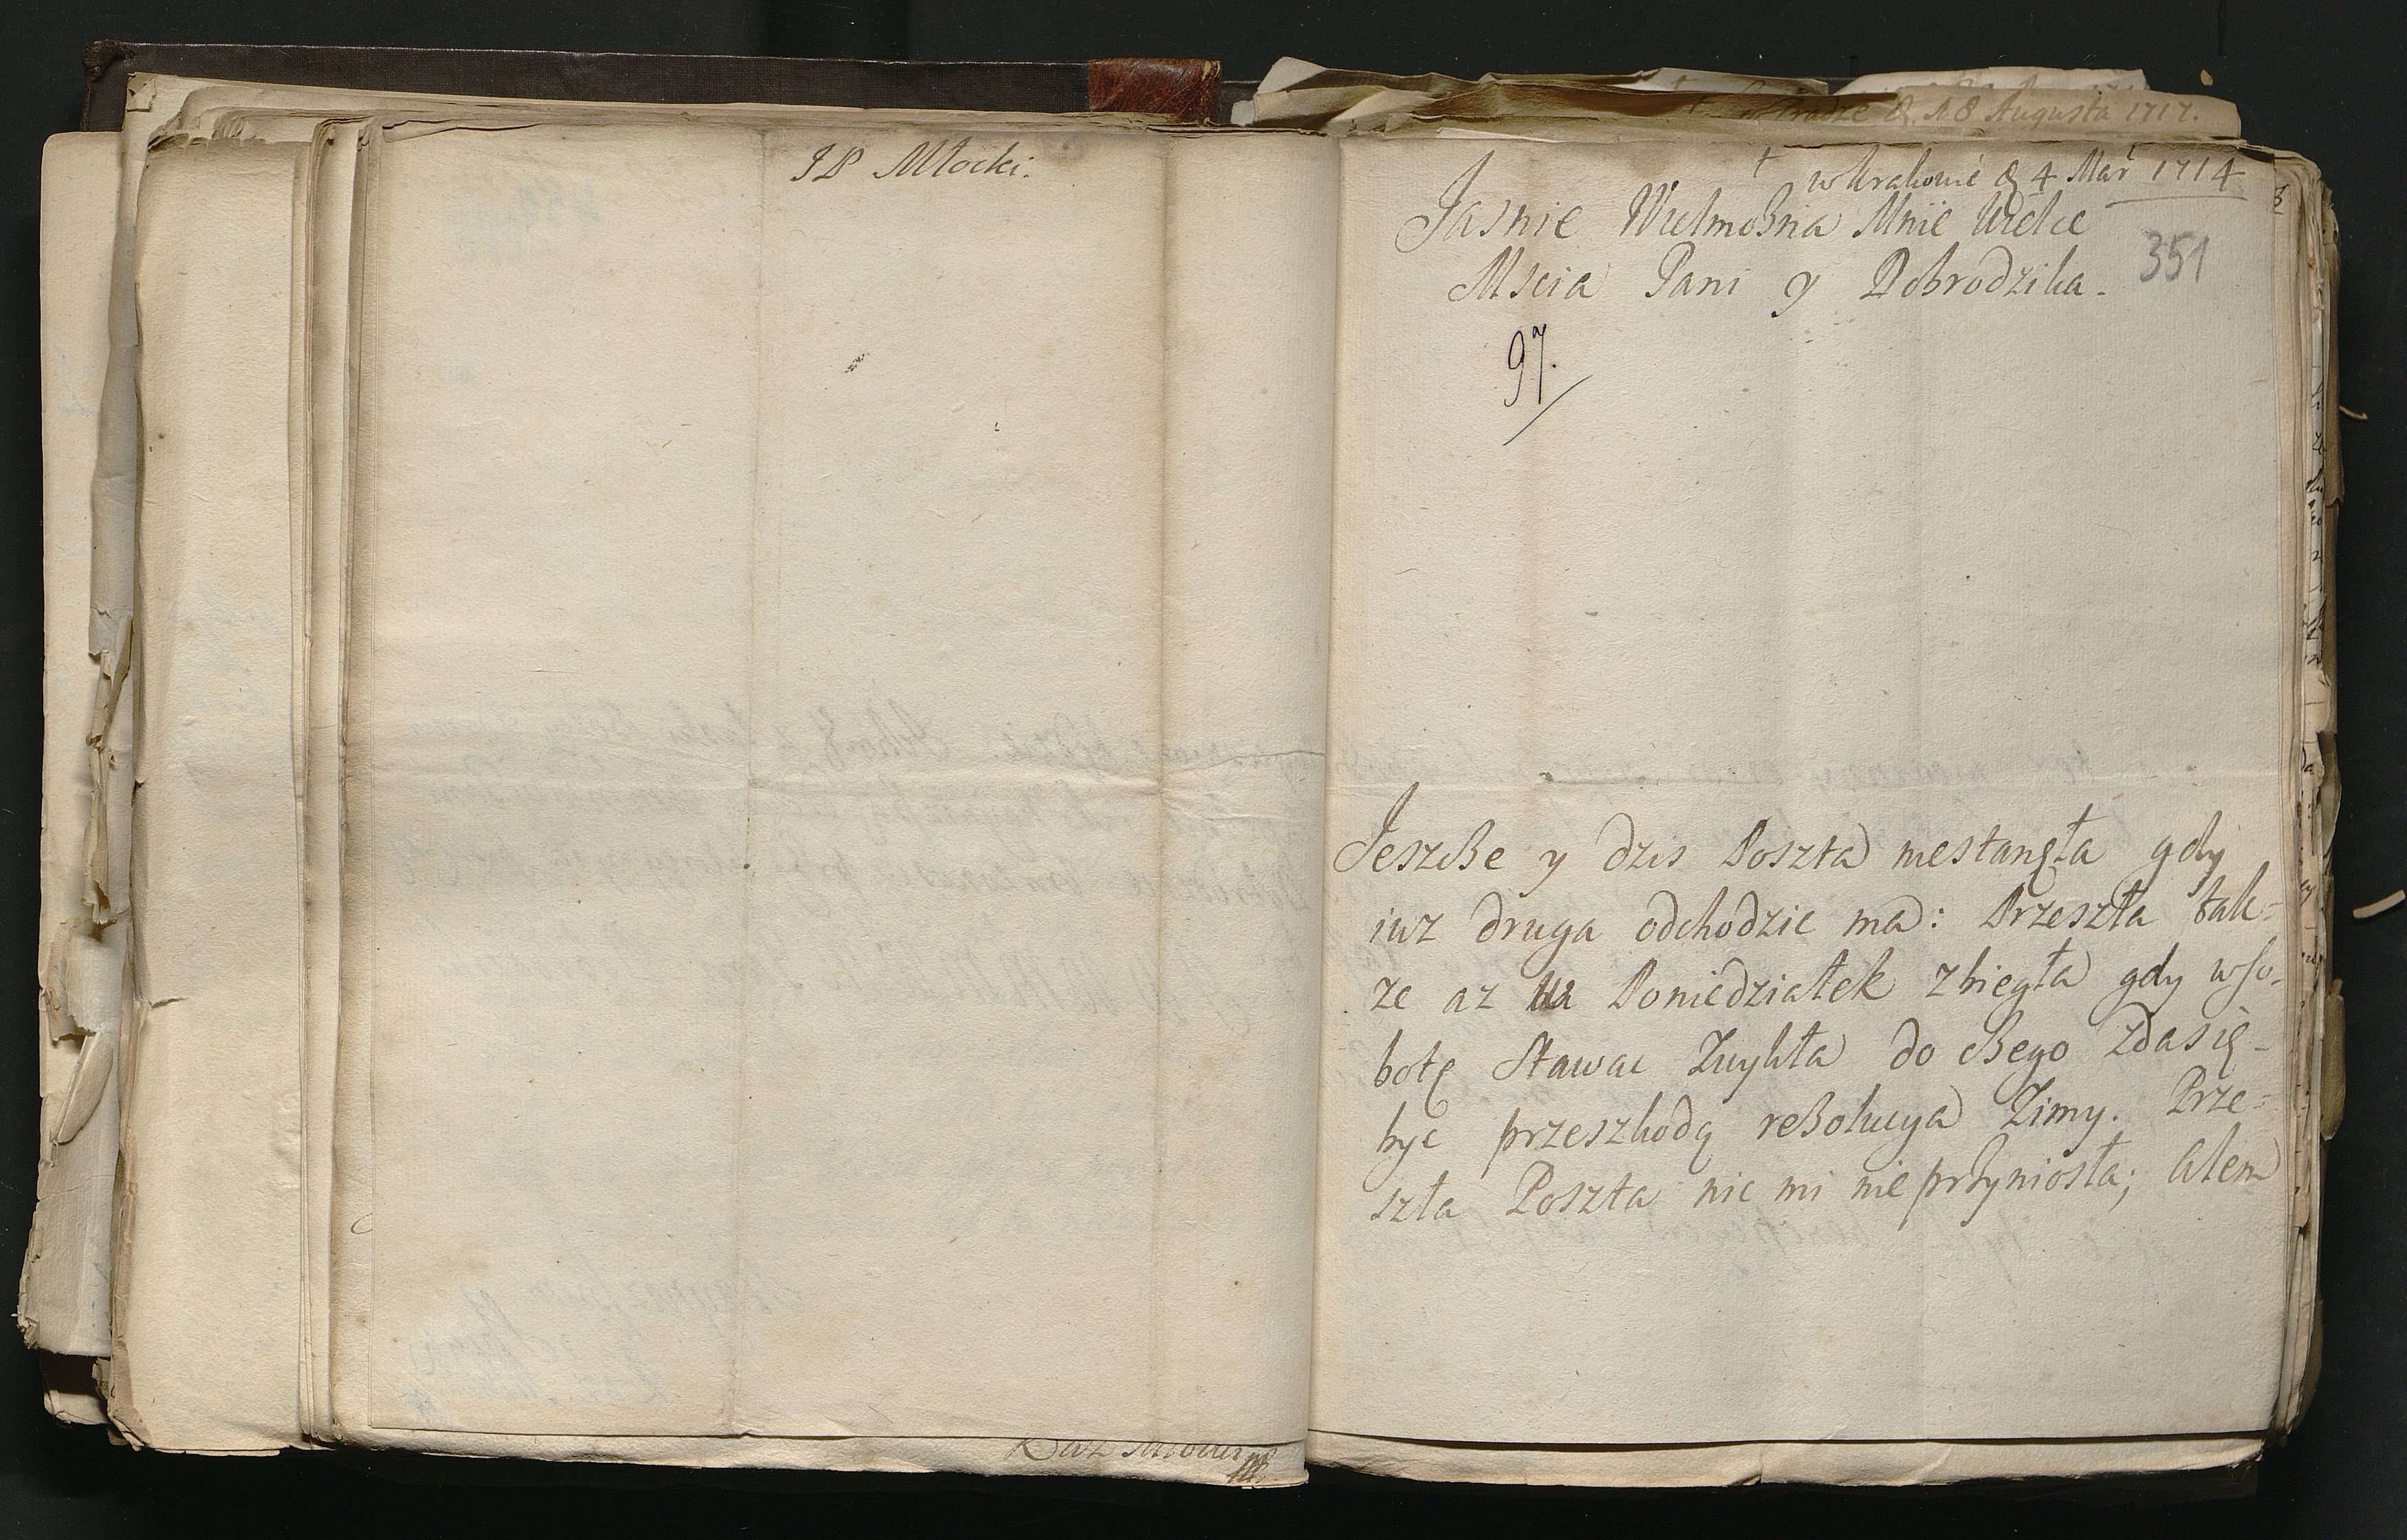 JP Młocki.
w Krakowie d. 4 Mar 1714
Jasnie Wielmożna Mnie Wielce
Mscia Pani y Dobrodzika.
351
97.
Jeszcże y dzis Poszta niestanęła gdy
iuz druga odchodzic ma: Przeszła tak=
ze az na Poniedziałek zbiegła gdy w so-
botę stawac zwykła do cżego zdasię-
byc przeszkodą reżolucya Zimy. Prze=
szła Poszta nic mi nie przyniosła; Alem
d. 18 Augusta 1717.